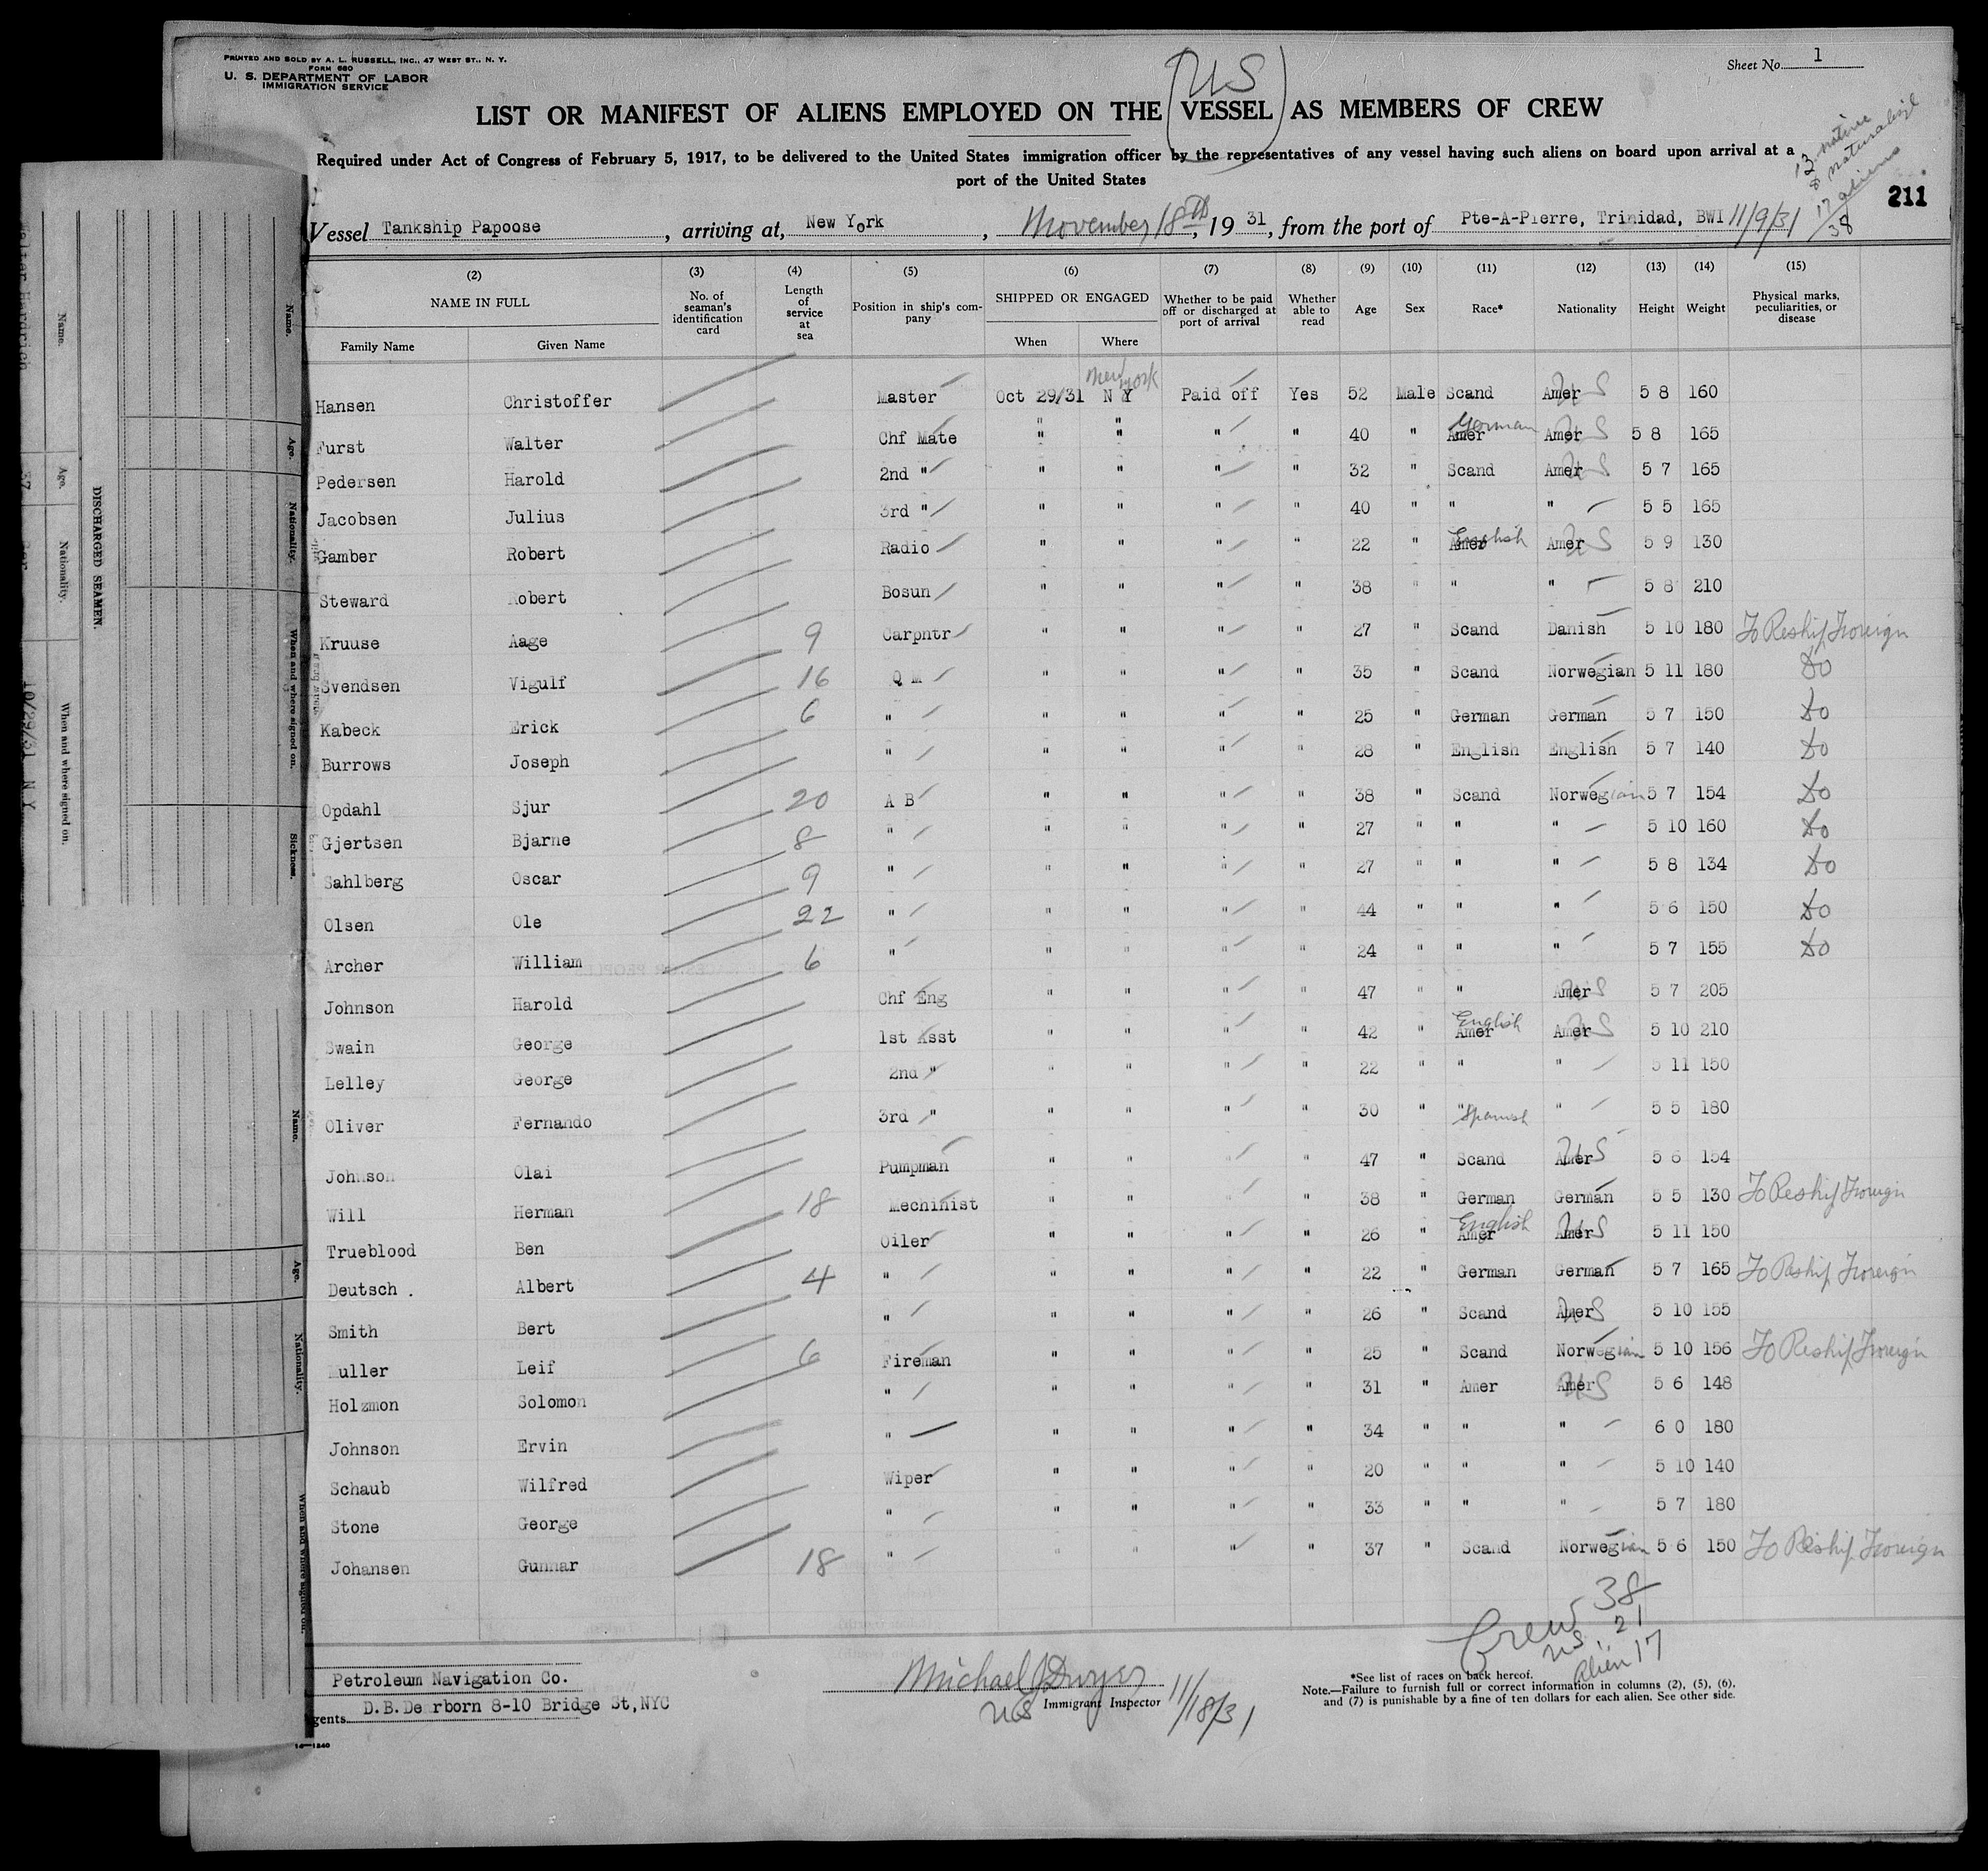 PRINTED AND SOLD BY A. L. RUSSELL, INC., 47 WEST ST., N. Y.
FORM 680
U. S. DEPARTMENT OF LABOR
IMMIGRATION SERVICE
Sheet No. 1
US
LIST OR MANIFEST OF ALIENS EMPLOYED ON THE VESSEL AS MEMBERS OF CREW
Required under Act of Congress of February 5, 1917, to be delivered to the United States immigration officer by the representatives of any vessel having such aliens on board upon arrival at a
port of the United States
13 native
8 naturalized
17 aliens
38
211
Vessel Tankship Papoose, arriving at, New York, November 18th, 1931, from the port of Pte-A-Pierre, Trinidad, BWI 11/9/31
(2) (3) (4) (5) (6) (7) (8) (9) (10) (11) (12) (13) (14) (15)
NAME IN FULL
Family Name Given Name
No. of seaman's identification card
Length of service at sea
Position in ship's company
SHIPPED OR ENGAGED
When Where
Whether to be paid off or discharged at port of arrival
Whether able to read
Age Sex Race* Nationality Height Weight
Physical marks, peculiarities, or disease
New York
Hansen Christoffer Master Oct 29/31 N Y Paid off Yes 52 Male Scand Amer US 5 8 160
Furst Walter Chf Mate " " " " 40 " Amer German Amer US 5 8 165
Pedersen Harold 2nd " " " " " 32 " Scand Amer US 5 7 165
Jacobsen Julius 3rd " " " " " 40 " " " 5 5 165
Gamber Robert Radio " " " " 22 " Amer English Amer US 5 9 130
Steward Robert Bosun " " " " 38 " " " 5 8 210
Kruuse Aage 9 Carpntr " " " " 27 " Scand Danish 5 10 180 To Reship Foreign
Svendsen Vigulf 16 Q M " " " " 35 " Scand Norwegian 5 11 180 Do
Kabeck Erick 6 " " " " " 25 " German German 5 7 150 Do
Burrows Joseph " " " " " 28 " English English 5 7 140 Do
Opdahl Sjur 20 A B " " " " 38 " Scand Norwegian 5 7 154 Do
Gjertsen Bjarne 8 " " " " " 27 " " " 5 10 160 Do
Sahlberg Oscar 9 " " " " " 27 " " " 5 8 134 Do
Olsen Ole 22 " " " " " 44 " " " 5 6 150 Do
Archer William 6 " " " " " 24 " " " 5 7 155 Do
Johnson Harold Chf Eng " " " " 47 " " Amer US 5 7 205
Swain George 1st Asst " " " " 42 " Amer English Amer US 5 10 210
Lelley George 2nd " " " " " 22 " " " 5 11 150
Oliver Fernando 3rd " " " " " 30 " " Spanish " 5 5 180
Johnson Olai Pumpman " " " " 47 " Scand Amer US 5 6 154
Will Herman 18 Mechinist " " " " 38 " German German 5 5 130 To Reship Foreign
Trueblood Ben Oiler " " " " 26 " Amer English Amer US 5 11 150
Deutsch . Albert 4 " " " " " 22 " German German 5 7 165 To Reship Foreign
Smith Bert " " " " " 26 " Scand Amer US 5 10 155
Muller Leif 6 Fireman " " " " 25 " Scand Norwegian 5 10 156 To Reship Foreign
Holzmon Solomon " " " " " 31 " Amer Amer US 5 6 148
Johnson Ervin " " " " " 34 " " " 6 0 180
Schaub Wilfred Wiper " " " " 20 " " " 5 10 140
Stone George " " " " " 33 " " " 5 7 180
Johansen Gunnar 18 " " " " " 37 " Scand Norwegian 5 6 150 To Reship Foreign
Crew 38
US 21
Alien 17
Petroleum Navigation Co.
Agents D.B.Dearborn 8-10 Bridge St,NYC
Michael J Dwyer
US Immigrant Inspector 11/18/31
*See list of races on back hereof.
Note.—Failure to furnish full or correct information in columns (2), (5), (6), and (7) is punishable by a fine of ten dollars for each alien. See other side.
Name.
Age.
Nationality.
When and where signed on.
DISCHARGED SEAMEN.
Name.
Age.
Nationality.
When and where signed on.
Sickness.
Name.
Age.
Nationality.
When and where signed on.
10/29/31 N Y